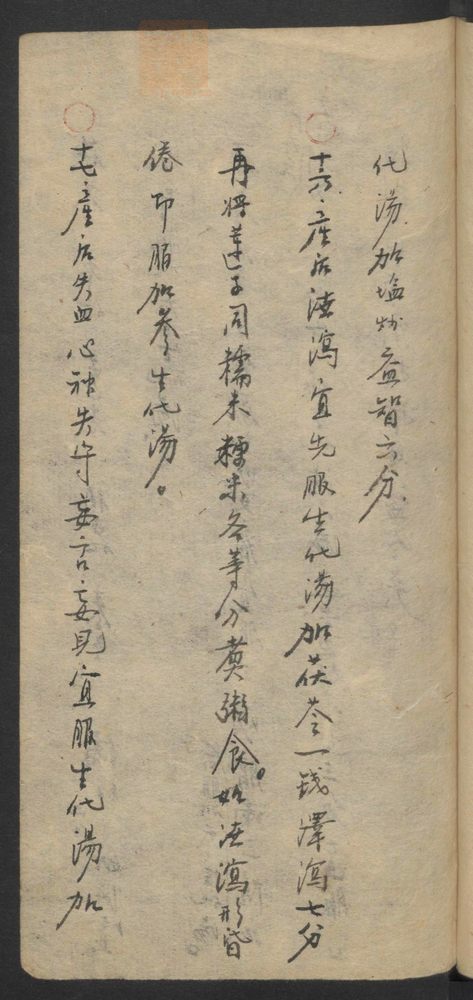 化湯加塩炒益智六分
十六、産后洩瀉宜先服生化湯加茯苓一錢澤瀉七分
再將莲子同糯米粳米各等分煑粥食。如洩瀉形昏
倦即服加參生化湯。
十七、產后失血心神失守妄言妄見宜服生化湯加